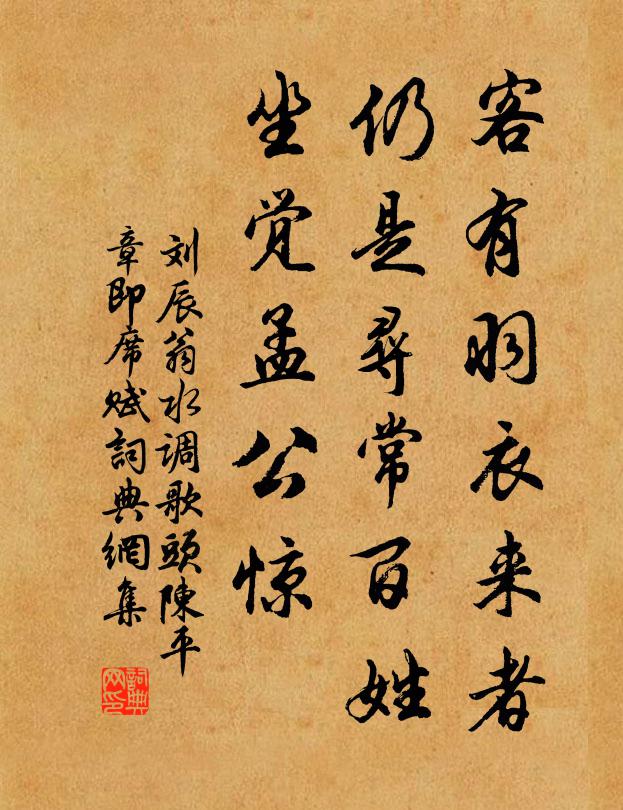 客有羽衣来者
仍是尋常百姓
坐觉孟公惊
刘辰翁水调歌頭陳平
章即席赋詞典網集
詞典
网印